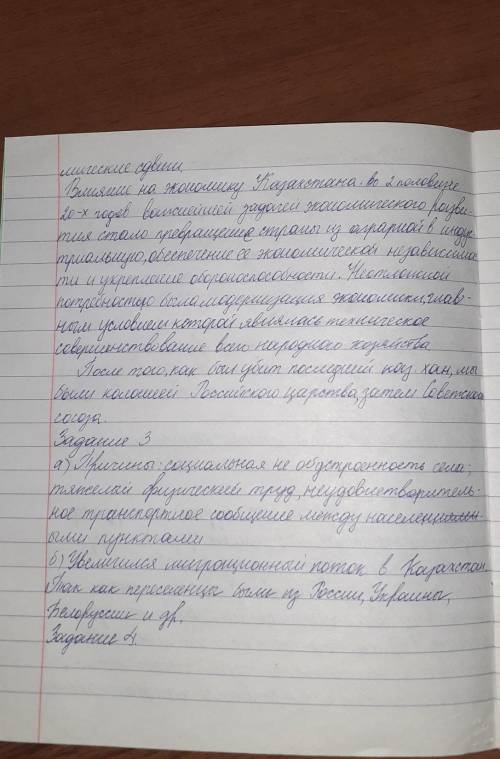 мические сдвиги.
Влияние на экономику Казахстана: во 2 половине
20-х годов важнейшей задачей экономического разви-
тия стало превращение страны из аграрной в индус
триальную, обеспечение ее экономической независимос
ти и укрепление обороноспособности. Неотложной
потребностью была модернизация экономики, глав-
ным условием которой являлась техническое
совершенствование всего народного хозяйства
После того, как был убит последний каз. хан, мы
были колонией Российского царства, затем Советского
союза.
Задание 3
а) Причины: социальная не обустроенность села;
тяжелый физический труд, неудовлетворитель-
ное транспортное сообщение между населен
ыми пунктами
б) Увеличился миграционный поток в Казахстан.
Так как переселенцы были из России, Украины,
Белоруссии и др.
Задание 4.